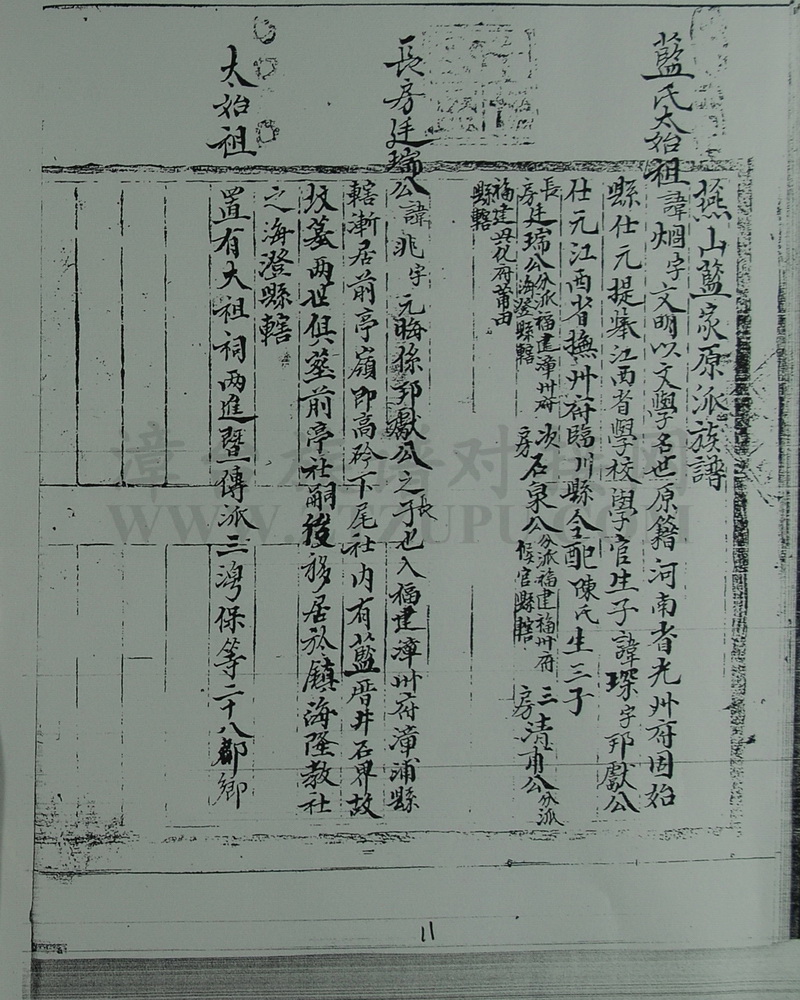 燕山藍家原派族譜
藍氏太始祖諱烟字文明以文學名世原籍河南省光州府固始
縣仕元提舉江西省學校學官生子諱琛字邦獻公
仕元江西省撫州府臨川縣令配陳氏生三子
長房廷瑞公分派福建漳州府海澄縣轄 次房石泉公分派福建福州府候官縣轄 三房清甫公分派
福建興化府莆田縣轄
長房廷瑞公諱兆字元晦係邦獻公之長子也入福建漳州府漳浦縣
轄漸居前亭嶺即高矜下尾社内有藍厝井石界故
坟墓兩世俱塟前亭社嗣後移居於鎮海隆教社
之海澄縣轄
太始祖置有大祖祠兩進暨傳派三灣保等二十八都鄉
WWW.ZZZUPU.COM
11